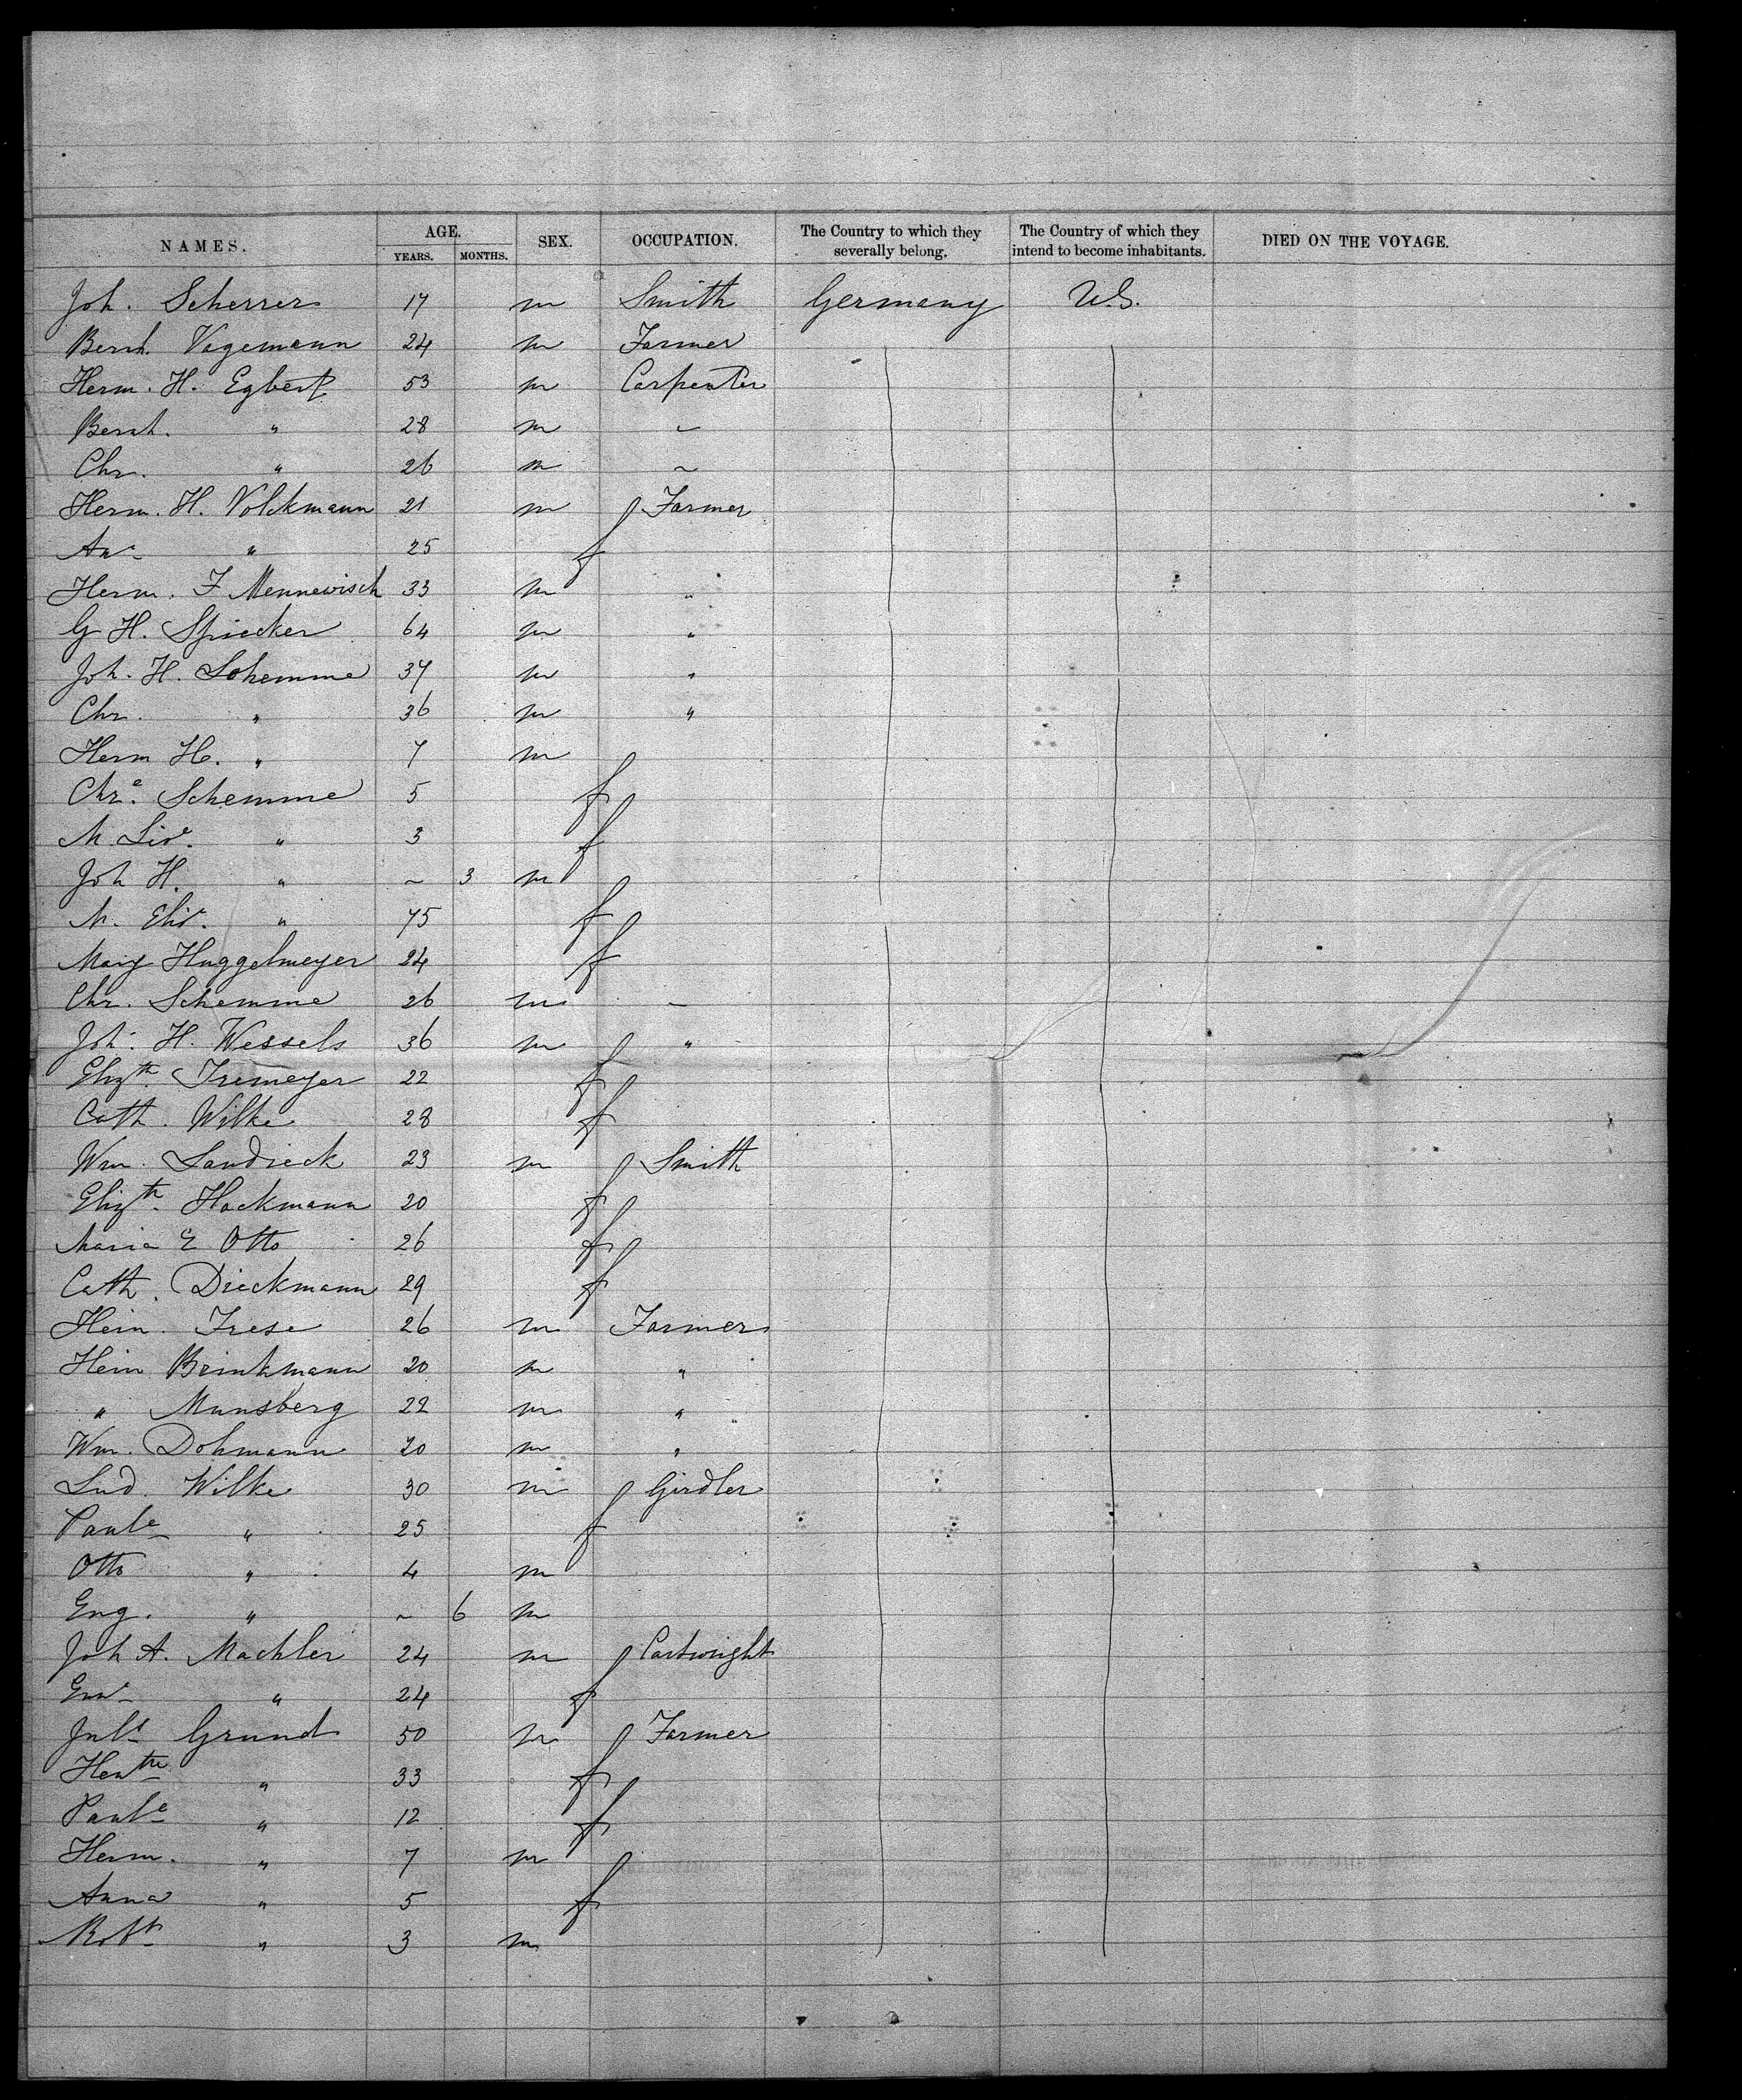 NAMES. AGE. SEX. OCCUPATION. The Country to which they severally belong. The Country of which they intend to become inhabitants. DIED ON THE VOYAGE.
YEARS. MONTHS.
Joh. Scherrer 17 m Smith Germany U.S.
Bernh. Vagemann 24 m Farmer
Herm. H. Egbert 53 m Carpenter
Bernh. " 28 m ~
Chr. " 26 m ~
Herm. H. Volckmann 21 m Farmer
An^a " 25 f
Herm. F Mennewisch 33 m "
G H. Spiecker 64 m "
Joh. H. Schemme 37 m "
Chr. " 36 m "
Herm H. " 7 m
Chr^e. Schemme 5 f
M. Lis^e. " 3 f
Joh H. " ~ 3 m
M. Elis^e. " 75 f
Mary Huggelmeyer 24 f
Chr. Schemme 26 m ~
Joh. H. Wessels 36 m "
Eliz^th. Tremeyer 22 f
Cath. Wilke 28 f
Wm. Landieck 23 m Smith
Eliz^th. Hackmann 20 f
Maria E Otto 26 f
Cath. Dieckmann 29 f
Hein. Frese 26 m Farmer
Hein Brinkmann 20 m "
" Munsberg 22 m "
Wm. Dohmann 20 m "
Lud. Wilke 30 m Girdler
Paul^e " 25 f
Otto " 4 m
Eug. " ~ 6 m
Joh A. Machler 24 m Cartwright
" 24 f
Jul^s Grund 50 m Farmer
Hen^tte " 33 f
Paul^e " 12 f
Herm. " 7 m
Anna " 5 f
Rob^t " 3 m